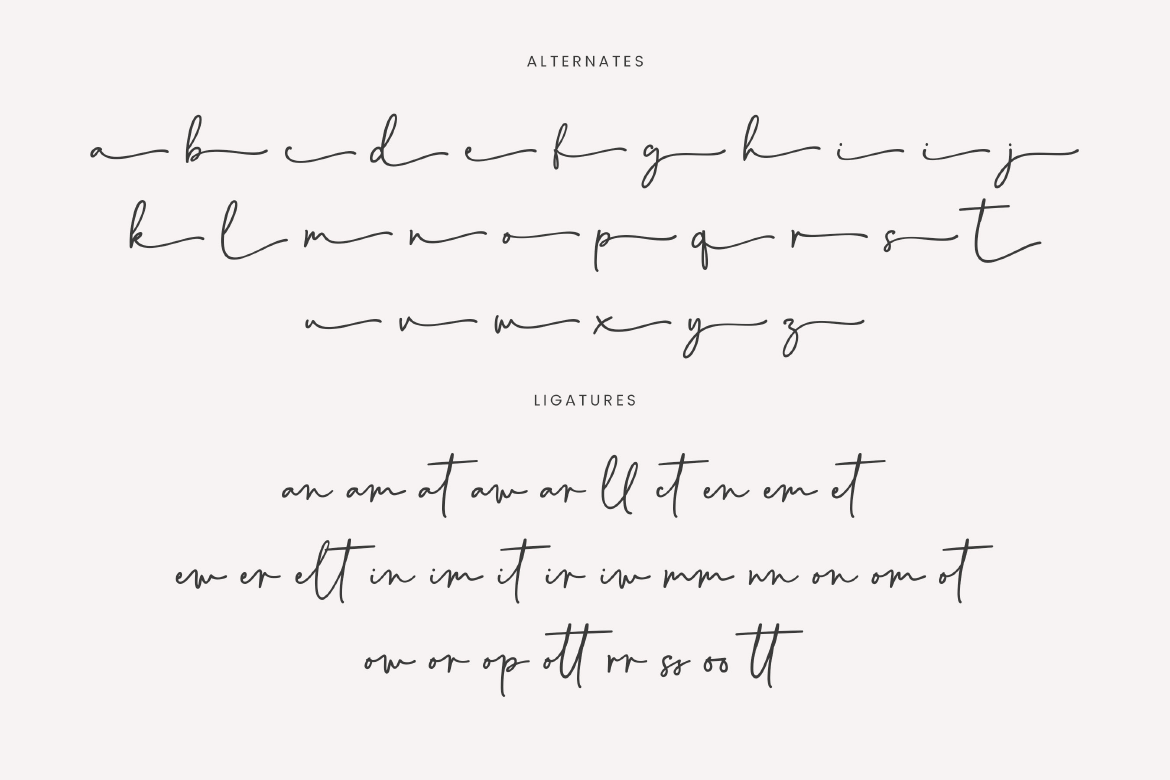 ALTERNATES
a b c d e f g h i i j
k l m n o p q r s t
u v w x y z
LIGATURES
an am at aw ar ll ct en em et
ew er elt in im it ir iw mm nn on om ot
ow or op ott rr ss oo tt